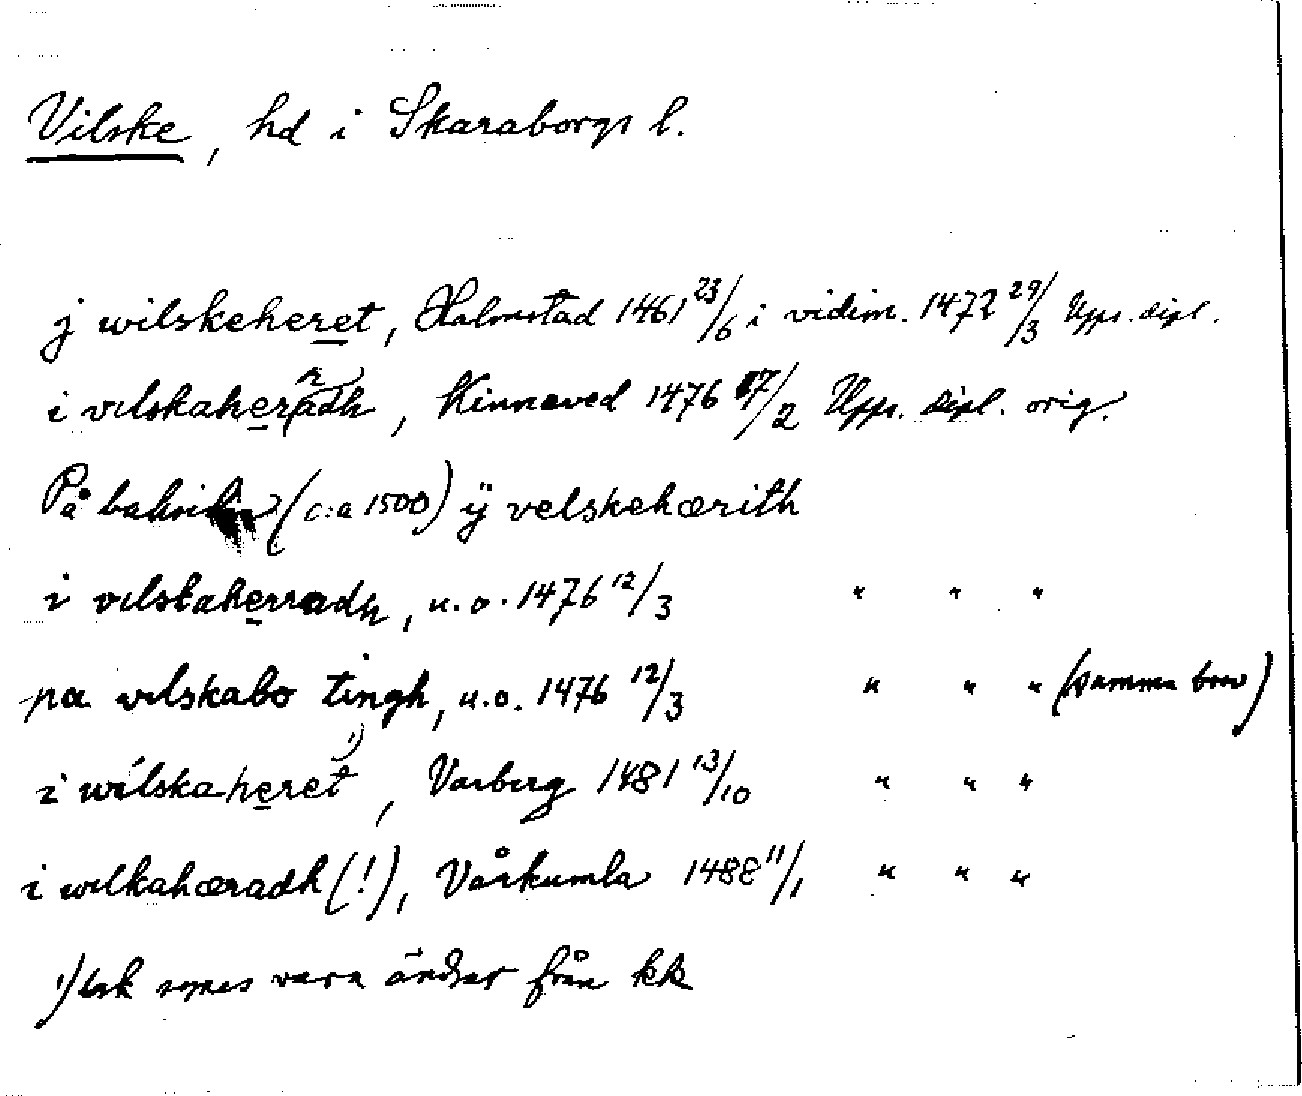 Vilske, hd i Skaraborgs l.
j wilskeheret, Halmstad 1461 23/6 i vidim. 1472 29/3 Upps. dipl.
i vilskaherradh, Kinneved 1476 17/2 Upps. dipl. orig.
På baksidan (c:a 1500) ÿ velskehærith
i vilskaherradh, u.o. 1476 12/3 " " "
pa wilskabo tingh, u.o. 1476 12/3 " " " (samma brev)
i wilskaheret 1), Varberg 1481 13/10 " " "
i wilkahæradh (!), Vårkumla 1488 11/1 " " "
1) sk synes vara ändrat från kk